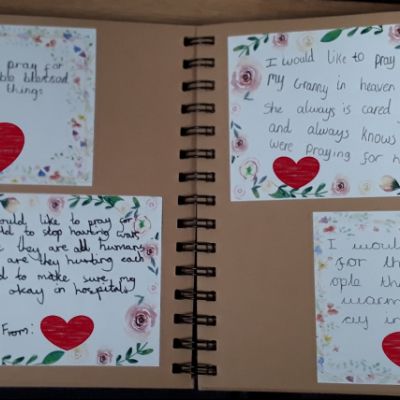 pray for
be blessed
things
ould like to pray for
ld to stop having war,
e they are all humans
are they hurting each
d to make sure my
okay in hospital
From:
I would like to pray
my Granny in heaven
She always is cared
and always knows
were praying for h
I would
for th
ople th
warm
cy in